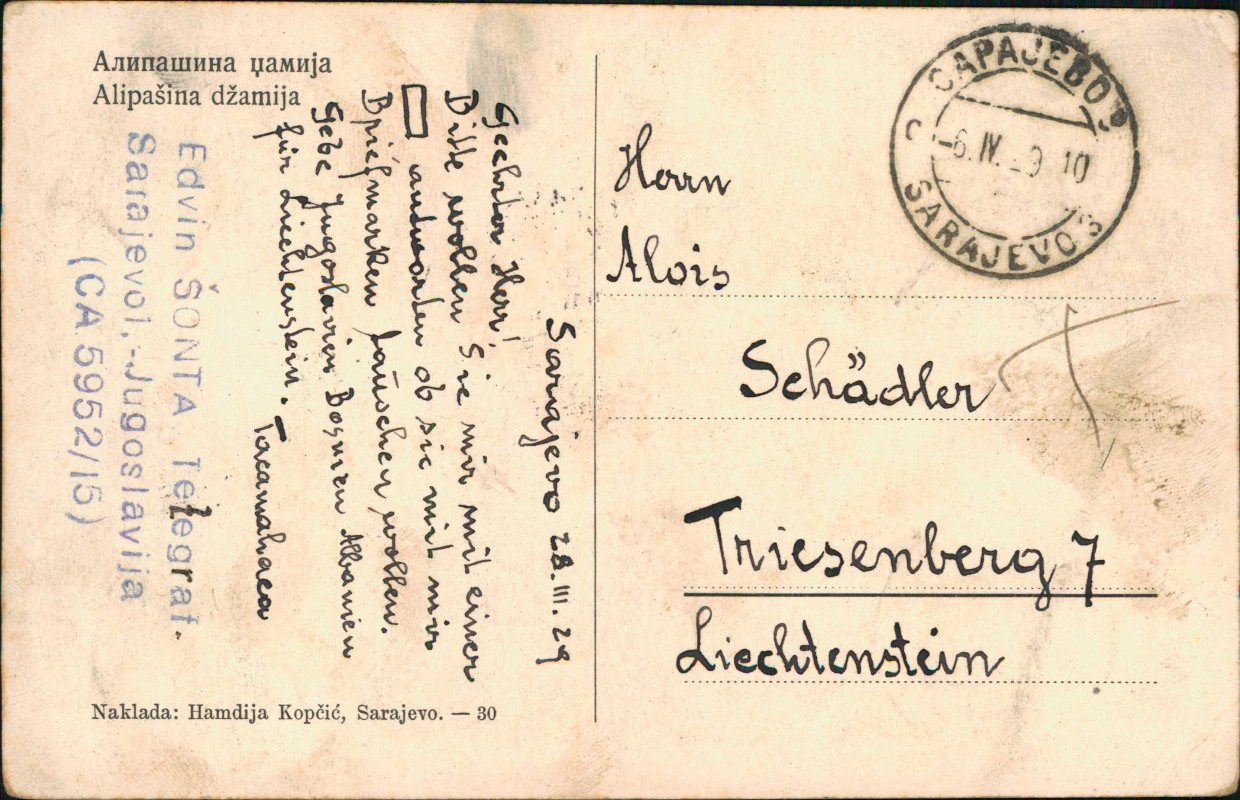 Алипашина џамија
Alipašina džamija
Sarajevo 28.III.29
Geehrter Herr!
Bitte wollen Sie mir mit einer
antworten ob sie mit mir
Briefmarken tauschen wollen.
Gebe Jugoslavien Bosnien Albanien
für Liechtenstein.
Edvin ŠONTA Telegraf.
Sarajevo1,-Jugoslavija
(CA 5952/15)
Naklada: Hamdija Kopčić, Sarajevo. — 30
САРАЈЕВО
-6.IV. 29 10
SARAJEVO
Herrn
Alois
Schädler
Triesenberg 7
Liechtenstein